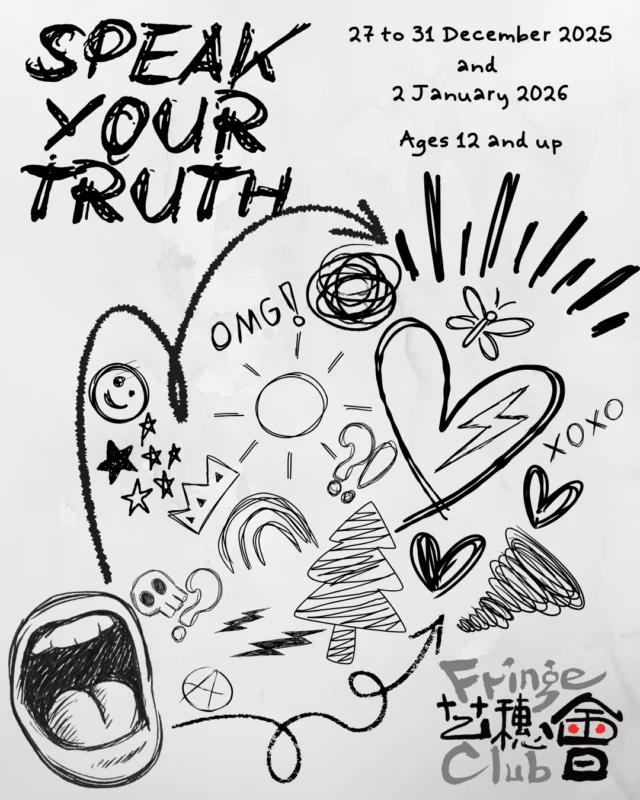 SPEAK
YOUR
TRUTH
27 to 31 December 2025
and
2 January 2026
Ages 12 and up
OMG!
??
XOXO
?
Fringe
艺穗會
Club